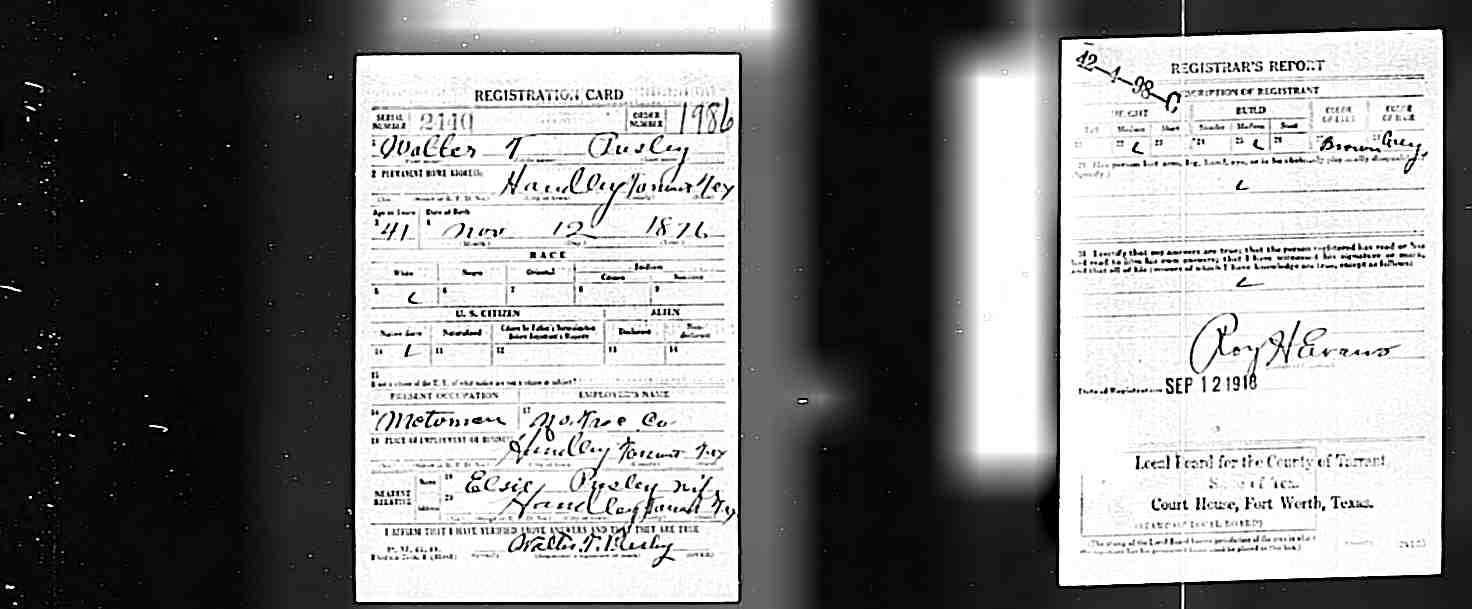 REGISTRATION CARD
SERIAL NUMBER 2440 ORDER NUMBER 1986
1 Walter T Pusley
2 PERMANENT HOME ADDRESS:
Handley Tarrant Tex
Age in Years Date of Birth
3 41 4 Nov 12 1876
(Month) (Day) (Year)
RACE
White Negro Oriental Indian
Citizen
5 6 7 8 9
U. S. CITIZEN ALIEN
Native Born Naturalized Citizen by Father's Naturalization Before Registrant's Majority Declarant Non-declarant
10 11 12 13 14
15
If not a citizen of the U. S., of what nation are you a citizen or subject?
PRESENT OCCUPATION EMPLOYER'S NAME
16 Motorman 17 Co
18 PLACE OF EMPLOYMENT OR BUSINESS:
Handley Tarrant Tex
NEAREST RELATIVE Name 19 Elsie Pusley
Address 20 Handley Tarrant Tex
I AFFIRM THAT I HAVE VERIFIED ABOVE ANSWERS AND THAT THEY ARE TRUE
Walter T. Pusley
(OVER)
42-4-98-C
REGISTRAR'S REPORT
DESCRIPTION OF REGISTRANT
HEIGHT BUILD COLOR OF EYES COLOR OF HAIR
Tall Medium Short Slender Medium Stout
21 22 23 24 25 26 27 Brown 28 Grey
29 Has person lost arm, leg, hand, eye, or is he obviously physically disqualified?
(Specify.)
30 I certify that my answers are true; that the person registered has read or has
had read to him his own answers; that I have witnessed his signature or mark,
and that all of his answers of which I have knowledge are true, except as follows:
Roy H Evans
Date of Registration SEP 12 1918
Local Board for the County of Tarrant,
State of Texas
Court House, Fort Worth, Texas.
(STAMP OF LOCAL BOARD)
(The stamp of the Local Board having jurisdiction of the area in which
the registrant has his permanent home shall be placed in this box.)